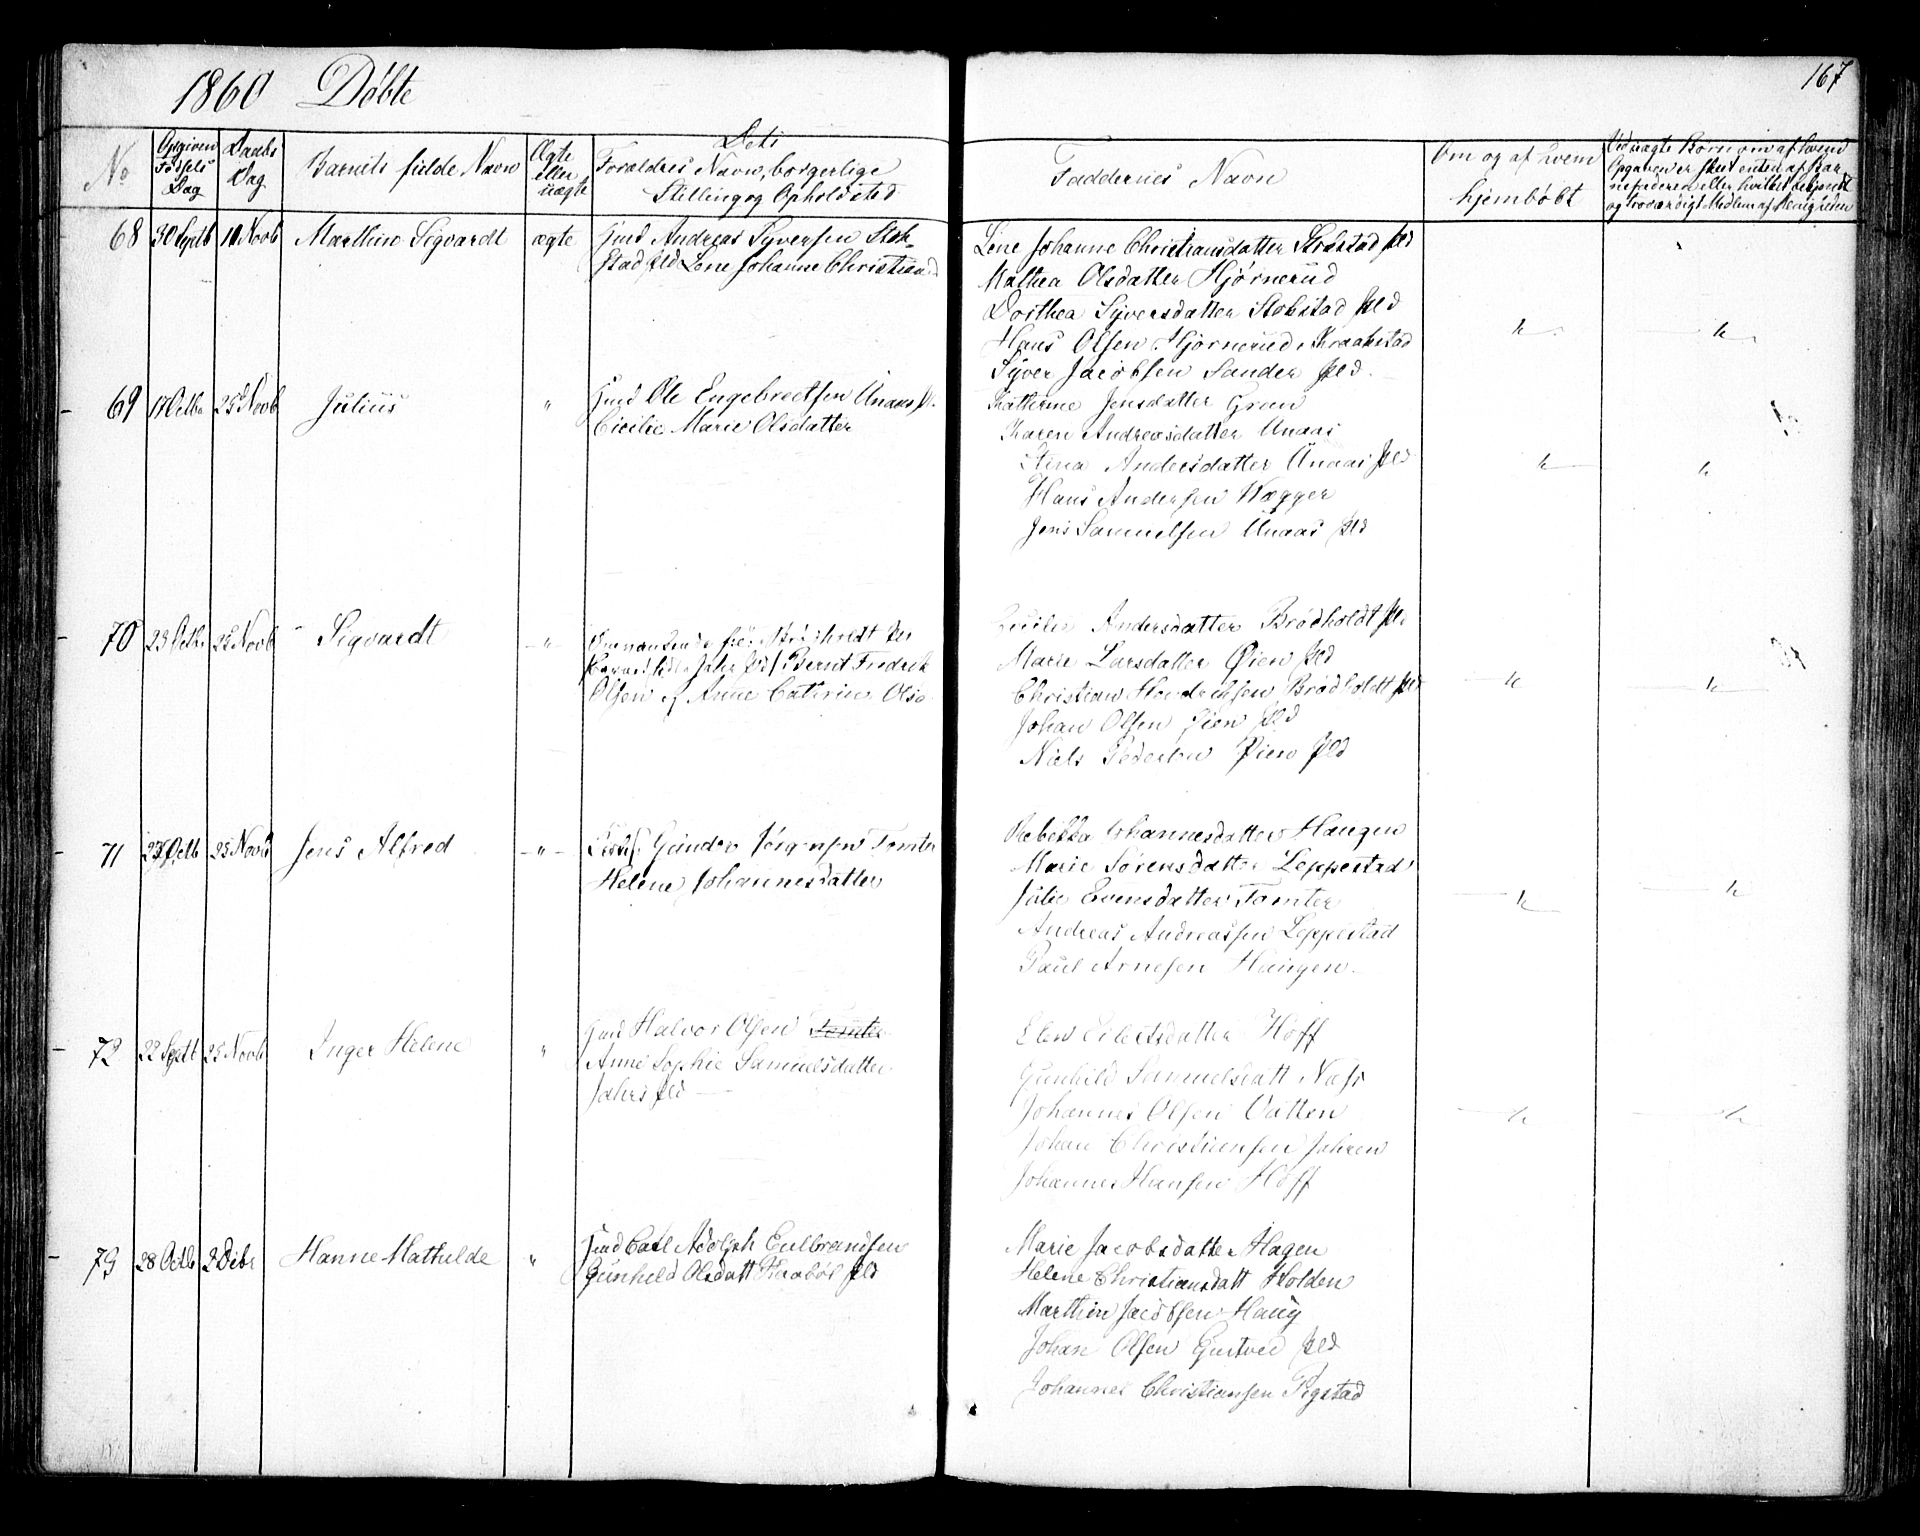 1860 Døbte
167
No
Opgiven Fødsels Dag
Daabs Dag
Barnets fulde Navn
Ægte eller uægte
Dets
Forældres Navn, borgerlige
Stilling og Opholdsted
Faddernes Navn
Om og af hvem
hjemdøbt
Ved uægte Børn om af hvem
Opgaven er skeet enten af Bar
nefaderen eller hvilket bekjendt
og troværdigt Medlem af Menigheden
68 30 Septb 11 Novb Marthin Sigvardt ægte Gmd Andreas Syversen Stok-
stad Pld Lene Johanne Christiansd
Lene Johanne Christiansdatter Stokstad Pld
Mathea Olsdatter Hjørnerud
Dorthea Syversdatter Stokstad Pld
Hans Olsen Hjørnerud, Kraakstad
Syver Jacobsen Sander Pld
69 17 Octbr 25 Novb Julius " Gmd Ole Engebretsen Unaas Pl.
Cicilie Marie Olsdatter
Kathrine Jensdatter Gran
Karen Andreasdatter Unaas
Stina Andersdatter Unaas Pld
Hans Andersen Wægger
Jens Samuelsen Unaas Pld
70 23 Octbr 25 Novb Sigvardt "
Bernt Fredrik
Olsen og Anne Cathrine Olsd
Andersdatter Brødholdt Pld
Marie Larsdatter Øien Pld
Christian Hendrichsen Brødholdt Pld
Johan Olsen Øien Pld
Niels Pedersen Øien Pld
71 27 Octb 25 Novb Jens Alfred " Gunder Jørgensen Tomter
Helene Johannesdatter
Rebekka Johannesdatter Haugen
Marie Sørensdatter Leppestad
Julie Evensdatter Tomter
Andreas Andreassen Leppestad
Paul Arnesen Haugen
72 22 Septb 25 Novb Inger Helene " Gmd Halvor Olsen Tomter
Anne Sophie Samuelsdatter
Jahr Pld
Elen Eilertsdatter Hoff
Gunhild Samuelsdatt Næss
Johannes Olsen Vatten
Johan Christiansen Jahren
Johannes Hansen Hoff
73 28 Octb 2 Debr Hanne Mathilde " Gmd Carl Adolph Gulbrandsen
Gunhild Olsdatt Kraabøl Pld
Marie Jacobsdatter Hagen
Helene Christiansdatt Holden
Marthin Jacobsen Haug
Johan Olsen Gustved Pld
Johannes Christiansen Pigstad